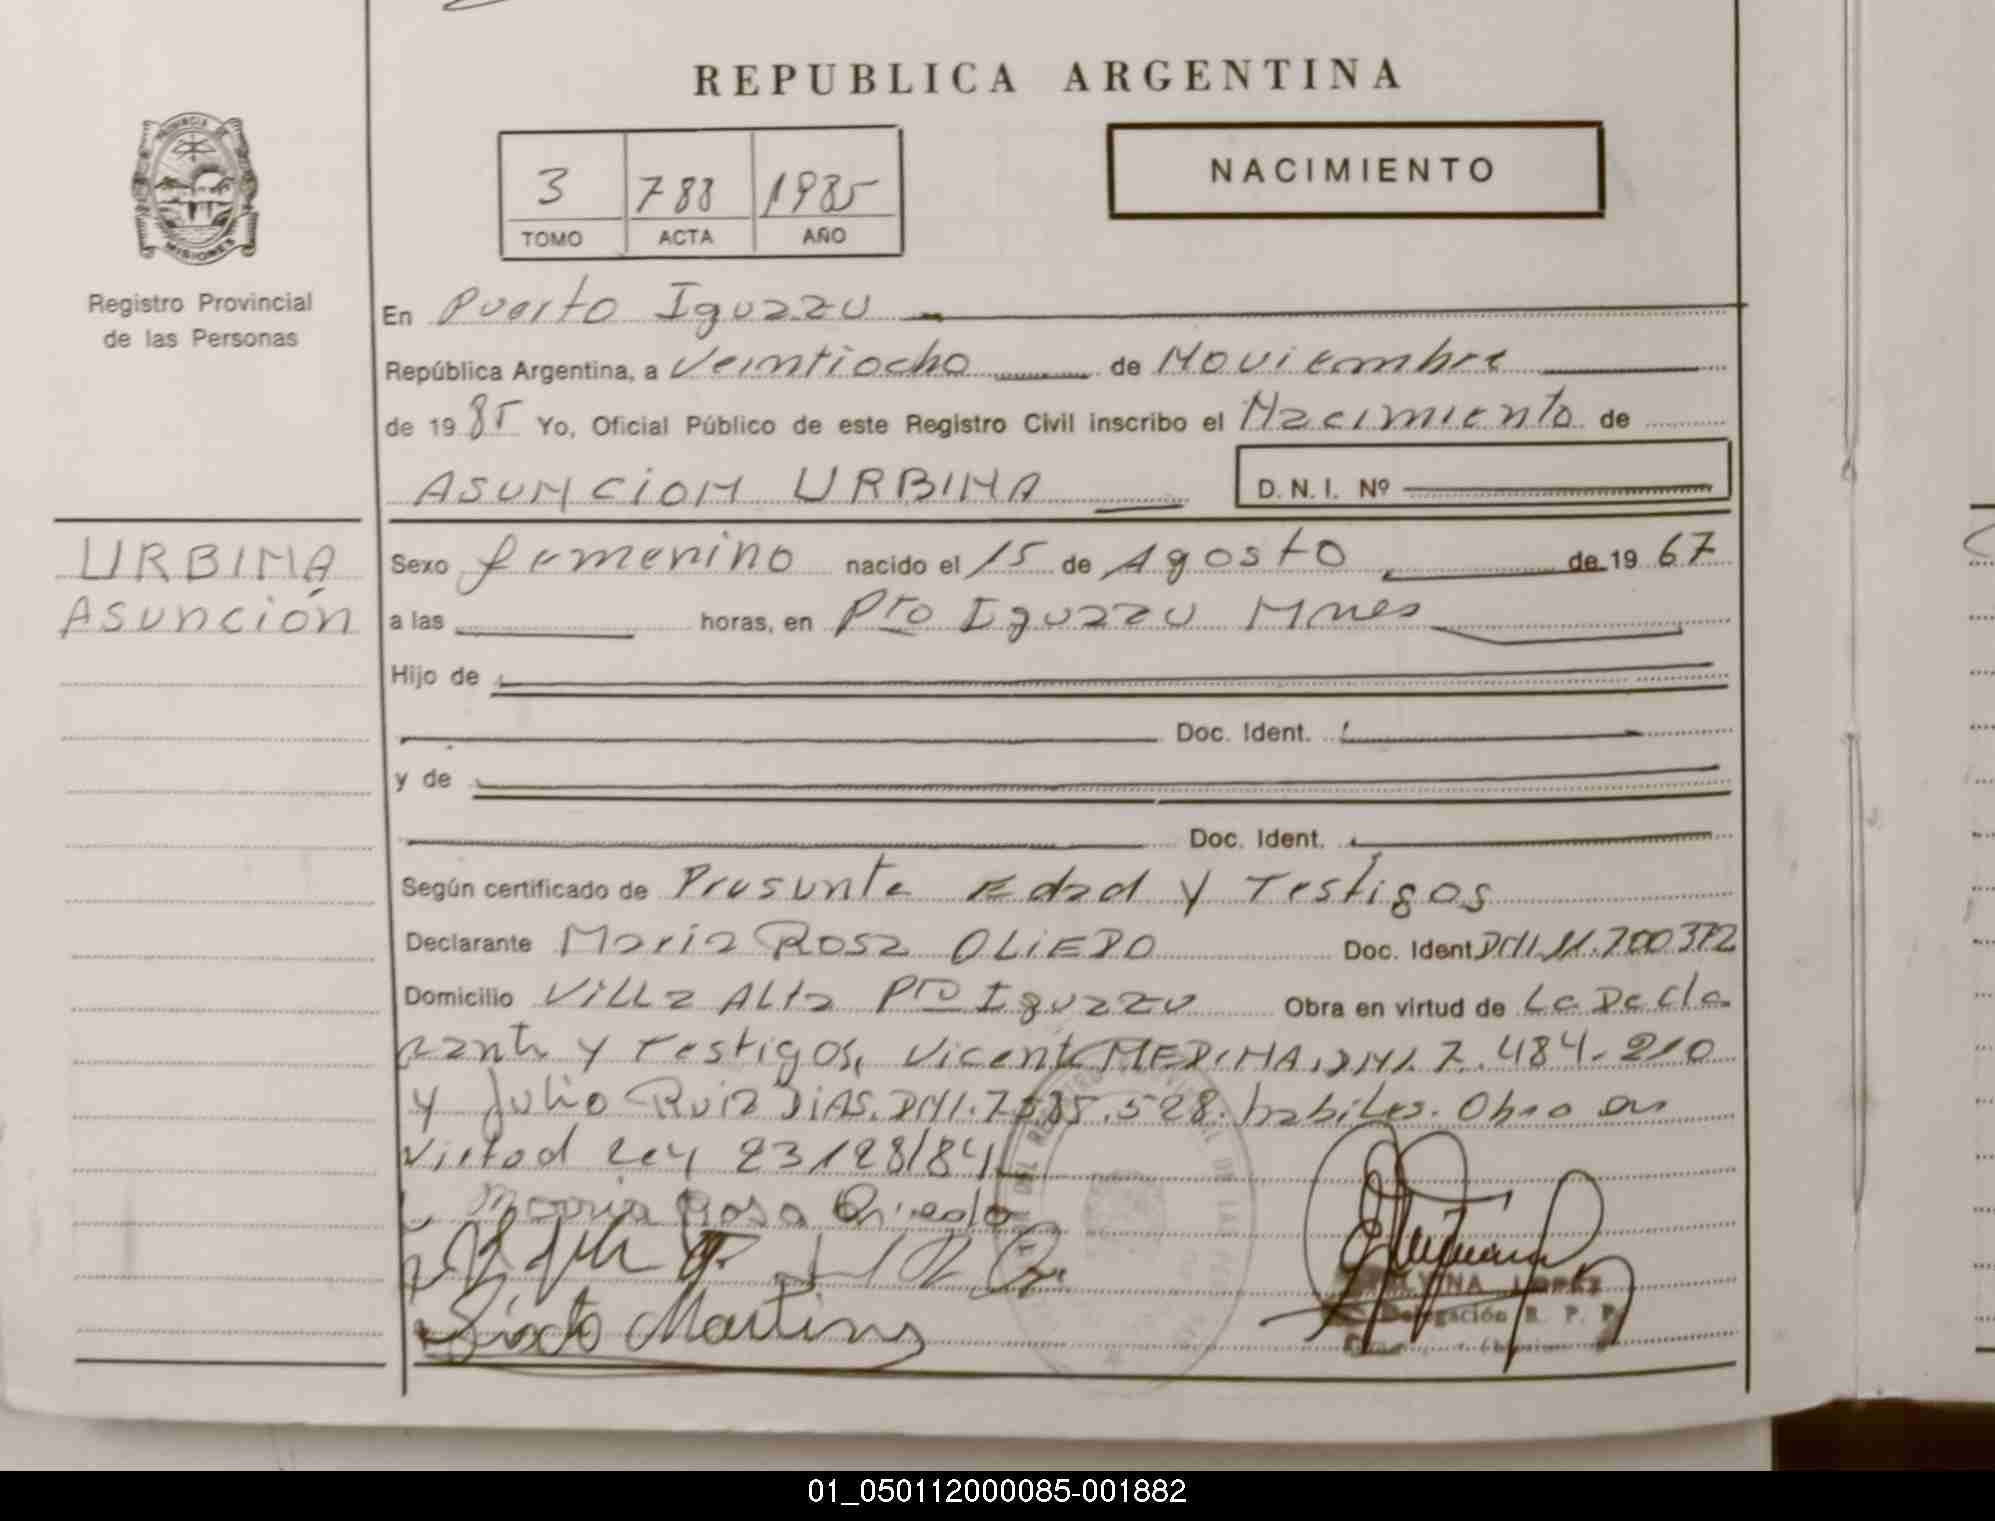 REPUBLICA ARGENTINA
PROVINCIA DE
MISIONES
Registro Provincial
de las Personas
3 788 1985
TOMO ACTA AÑO
NACIMIENTO
En Puerto Iguazu
República Argentina, a Veintiocho de Noviembre
de 1985 Yo, Oficial Público de este Registro Civil inscribo el Nacimiento de
ASUNCION URBINA D. N. I. Nº
URBINA
Asunción
Sexo femenino nacido el 15 de Agosto de 19 67
a las horas, en Pto Iguazu Mnes
Hijo de
Doc. Ident.
y de
Doc. Ident.
Según certificado de Presunta Edad y Testigos
Declarante Maria Rosa OLIEDO Doc. Ident DNI.11.700372
Domicilio Villa Alta Pto Iguazu Obra en virtud de La Decla
rante y Testigos, Vicente MEDINA, DNI. 7.484.210
y Julio Ruiz DIAS. DNI. 7.585.528. habiles. Obro en
Virtud Ley 23128/84
Maria Rosa
Sixto Martinez
LOPEZ
Delegación R. P. P.
01_050112000085-001882